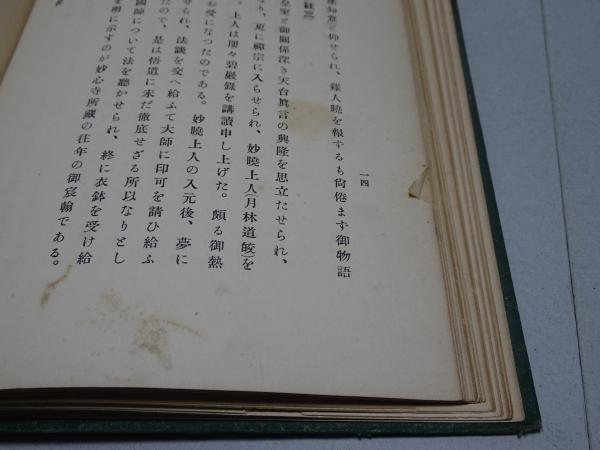 一四
知恵と仰せられ、雞人曉を報ずるも尙倦まず御物語
註三
皇室と御關係深き天台眞言の興隆を思立たせられ、
なり、更に禪宗に入らせられ、妙曉上人(月林道皎)を
。上人は屢々碧巖錄を講讀申し上げた。頗る御熱
お受になつたのである。妙曉上人の入元後、夢に
せられ、法談を交へ給ふて大師に印可を請ひ給ふ
たので、是は悟道に未だ徹底せざる所以なりとし
國師について法を聽かせられ、終に衣鉢を受け給
を明に示すのが妙心寺所藏の往年の御宸翰である。